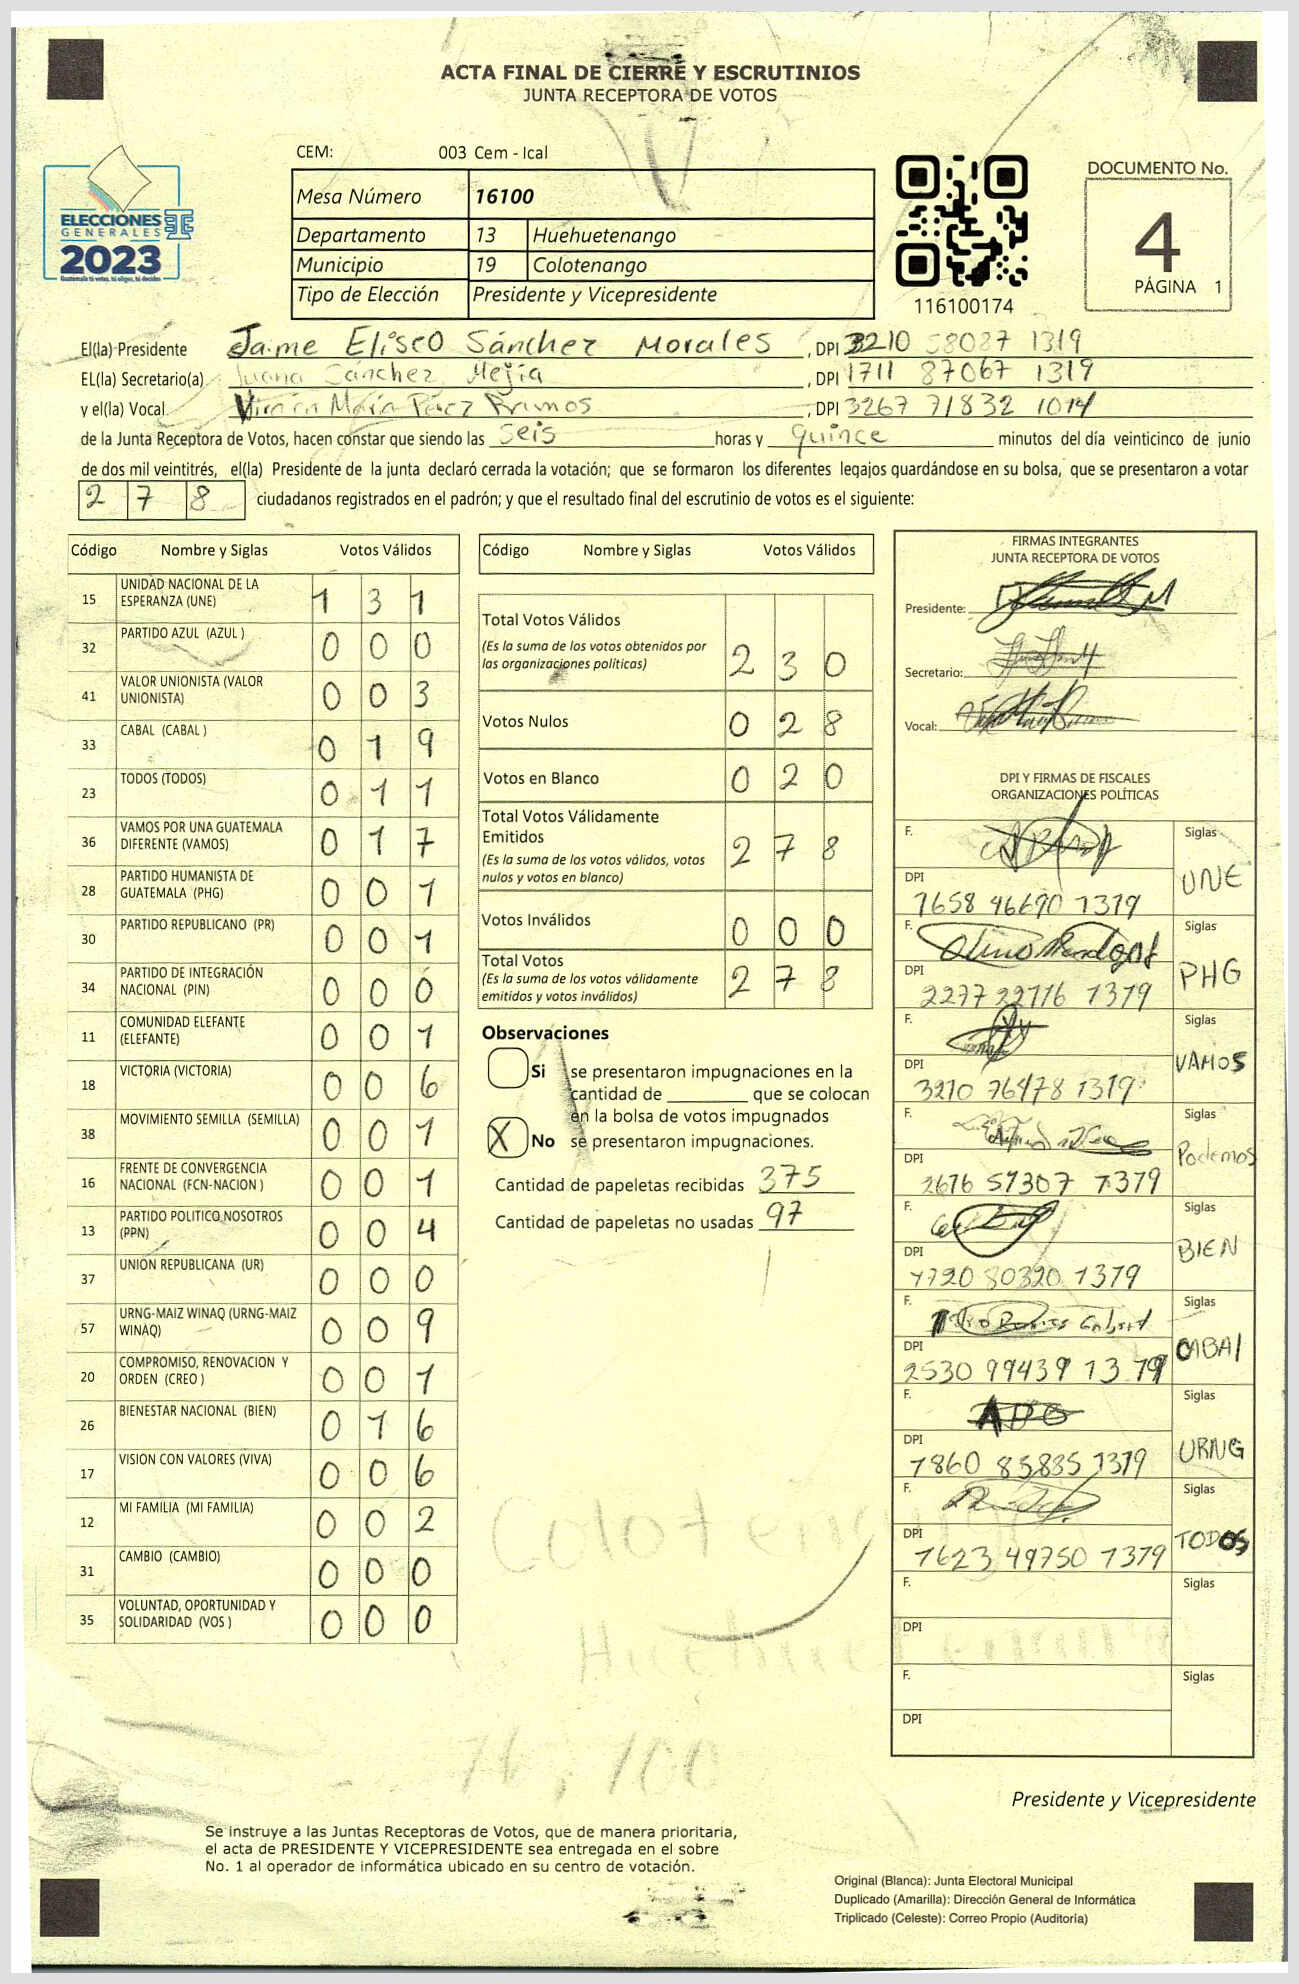 ACTA FINAL DE CIERRE Y ESCRUTINIOS
JUNTA RECEPTORA DE VOTOS
ELECCIONES
GENERALES
2023
Guatemala tú votas, tú eliges, tú decides
CEM: 003 Cem - Ical
Mesa Número 16100
Departamento 13 Huehuetenango
Municipio 19 Colotenango
Tipo de Elección Presidente y Vicepresidente
116100174
DOCUMENTO No.
4
PÁGINA 1
El(la) Presidente Jaime Eliseo Sánchez Morales , DPI 3210 58027 1319
EL(la) Secretario(a) Juana Sánchez Mejía , DPI 1711 87067 1319
y el(la) Vocal Pérez Ramos , DPI 3267 71832 1014
de la Junta Receptora de Votos, hacen constar que siendo las seis horas y quince minutos del día veinticinco de junio
de dos mil veintitrés, el(la) Presidente de la junta declaró cerrada la votación; que se formaron los diferentes legajos quardándose en su bolsa, que se presentaron a votar
2 7 8 ciudadanos registrados en el padrón; y que el resultado final del escrutinio de votos es el siguiente:
Código Nombre y Siglas Votos Válidos
15 UNIDAD NACIONAL DE LA ESPERANZA (UNE) 1 3 1
32 PARTIDO AZUL (AZUL ) 0 0 0
41 VALOR UNIONISTA (VALOR UNIONISTA) 0 0 3
33 CABAL (CABAL ) 0 1 9
23 TODOS (TODOS) 0 1 1
36 VAMOS POR UNA GUATEMALA DIFERENTE (VAMOS) 0 1 7
28 PARTIDO HUMANISTA DE GUATEMALA (PHG) 0 0 1
30 PARTIDO REPUBLICANO (PR) 0 0 1
34 PARTIDO DE INTEGRACIÓN NACIONAL (PIN) 0 0 0
11 COMUNIDAD ELEFANTE (ELEFANTE) 0 0 1
18 VICTORIA (VICTORIA) 0 0 6
38 MOVIMIENTO SEMILLA (SEMILLA) 0 0 1
16 FRENTE DE CONVERGENCIA NACIONAL (FCN-NACION ) 0 0 1
13 PARTIDO POLITICO NOSOTROS (PPN) 0 0 4
37 UNION REPUBLICANA (UR) 0 0 0
57 URNG-MAIZ WINAQ (URNG-MAIZ WINAQ) 0 0 9
20 COMPROMISO, RENOVACION Y ORDEN (CREO ) 0 0 1
26 BIENESTAR NACIONAL (BIEN) 0 1 6
17 VISION CON VALORES (VIVA) 0 0 6
12 MI FAMILIA (MI FAMILIA) 0 0 2
31 CAMBIO (CAMBIO) 0 0 0
35 VOLUNTAD, OPORTUNIDAD Y SOLIDARIDAD (VOS ) 0 0 0
Código Nombre y Siglas Votos Válidos
Total Votos Válidos 2 3 0
(Es la suma de los votos obtenidos por
las organizaciones políticas)
Votos Nulos 0 2 8
Votos en Blanco 0 2 0
Total Votos Válidamente
Emitidos 2 7 8
(Es la suma de los votos válidos, votos
nulos y votos en blanco)
Votos Inválidos 0 0 0
Total Votos 2 7 8
(Es la suma de los votos válidamente
emitidos y votos inválidos)
Observaciones
Si se presentaron impugnaciones en la
cantidad de ________ que se colocan
en la bolsa de votos impugnados
X No se presentaron impugnaciones.
Cantidad de papeletas recibidas 375
Cantidad de papeletas no usadas 97
FIRMAS INTEGRANTES
JUNTA RECEPTORA DE VOTOS
Presidente:
Secretario:
Vocal:
DPI Y FIRMAS DE FISCALES
ORGANIZACIONES POLÍTICAS
F. Siglas
DPI UNE
1658 46690 1319
F. Siglas
DPI PHG
2277 22116 1319
F. Siglas
DPI VAMOS
3210 76478 1319
F. Siglas
DPI Podemos
2676 57307 1319
F. Siglas
DPI BIEN
1720 80320 1319
F. Siglas
DPI CABAl
2530 99439 1319
F. Siglas
DPI URNG
1860 85835 1319
F. Siglas
DPI TODOS
1623 49750 1319
F. Siglas
DPI
F. Siglas
DPI
Colotenango
Huehuetenango
16,100
Presidente y Vicepresidente
Se instruye a las Juntas Receptoras de Votos, que de manera prioritaria,
el acta de PRESIDENTE Y VICEPRESIDENTE sea entregada en el sobre
No. 1 al operador de informática ubicado en su centro de votación.
Original (Blanca): Junta Electoral Municipal
Duplicado (Amarilla): Dirección General de Informática
Triplicado (Celeste): Correo Propio (Auditoría)